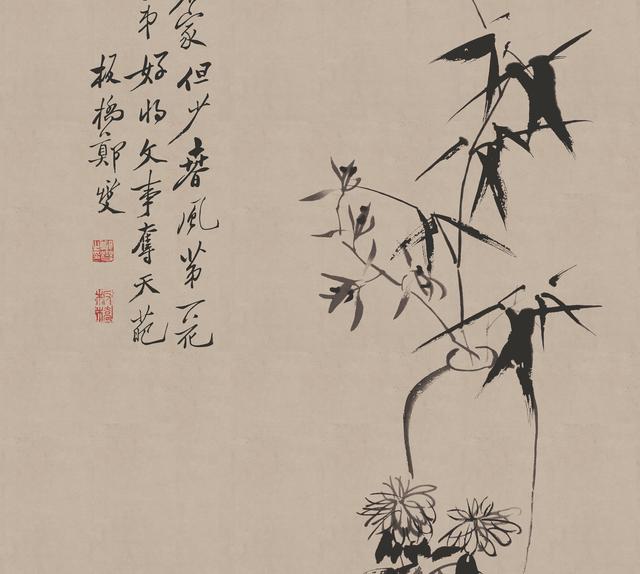 家但少春風第一花
好將文事奪天葩
板橋鄭燮